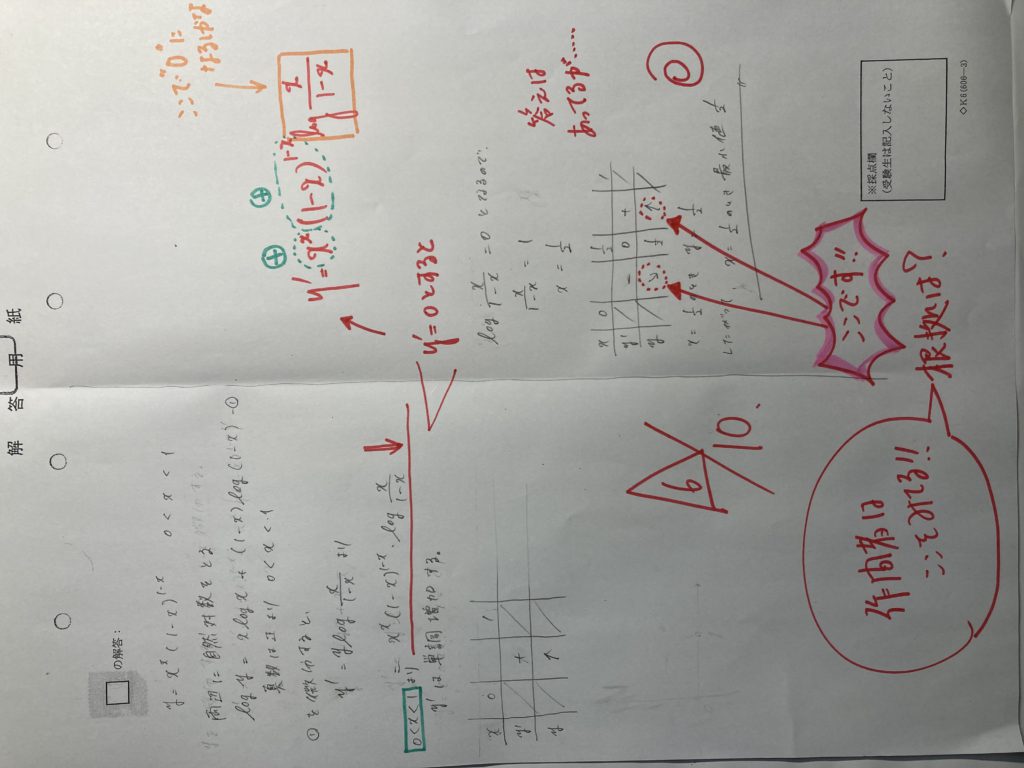 解 答 用 紙
□ の解答：
y = x^x (1-x)^{1-x}　0 < x < 1
両辺に自然対数をとる
log y = x log x + (1-x) log (1-x) -①
真数は正より 0 < x < 1
①を微分すると、
y' = y log x/(1-x) より
= x^x (1-x)^{1-x} · log x/(1-x)
0<x<1 より
y' は単調増加する。
x 0 1
y' +
y ↑
6/10.
y'=0とすると
y' = x^x (1-x)^{1-x} log x/(1-x)
⊕ ⊕
ここで"0"に
なるしかな
log x/(1-x) = 0 となるので、
x/(1-x) = 1
x = 1/2
x 0 1/2 1
y' - 0 +
y ↘ 1/2 ↑
x = 1/2 のとき y = 1/2
したがって x = 1/2 のとき 最小値 1/2
答えは
あってるが……
0
ここです!!
根拠は？
作問者は
ここをみてる!!
※採点欄
(受験生は記入しないこと)
◇K6(606—3)